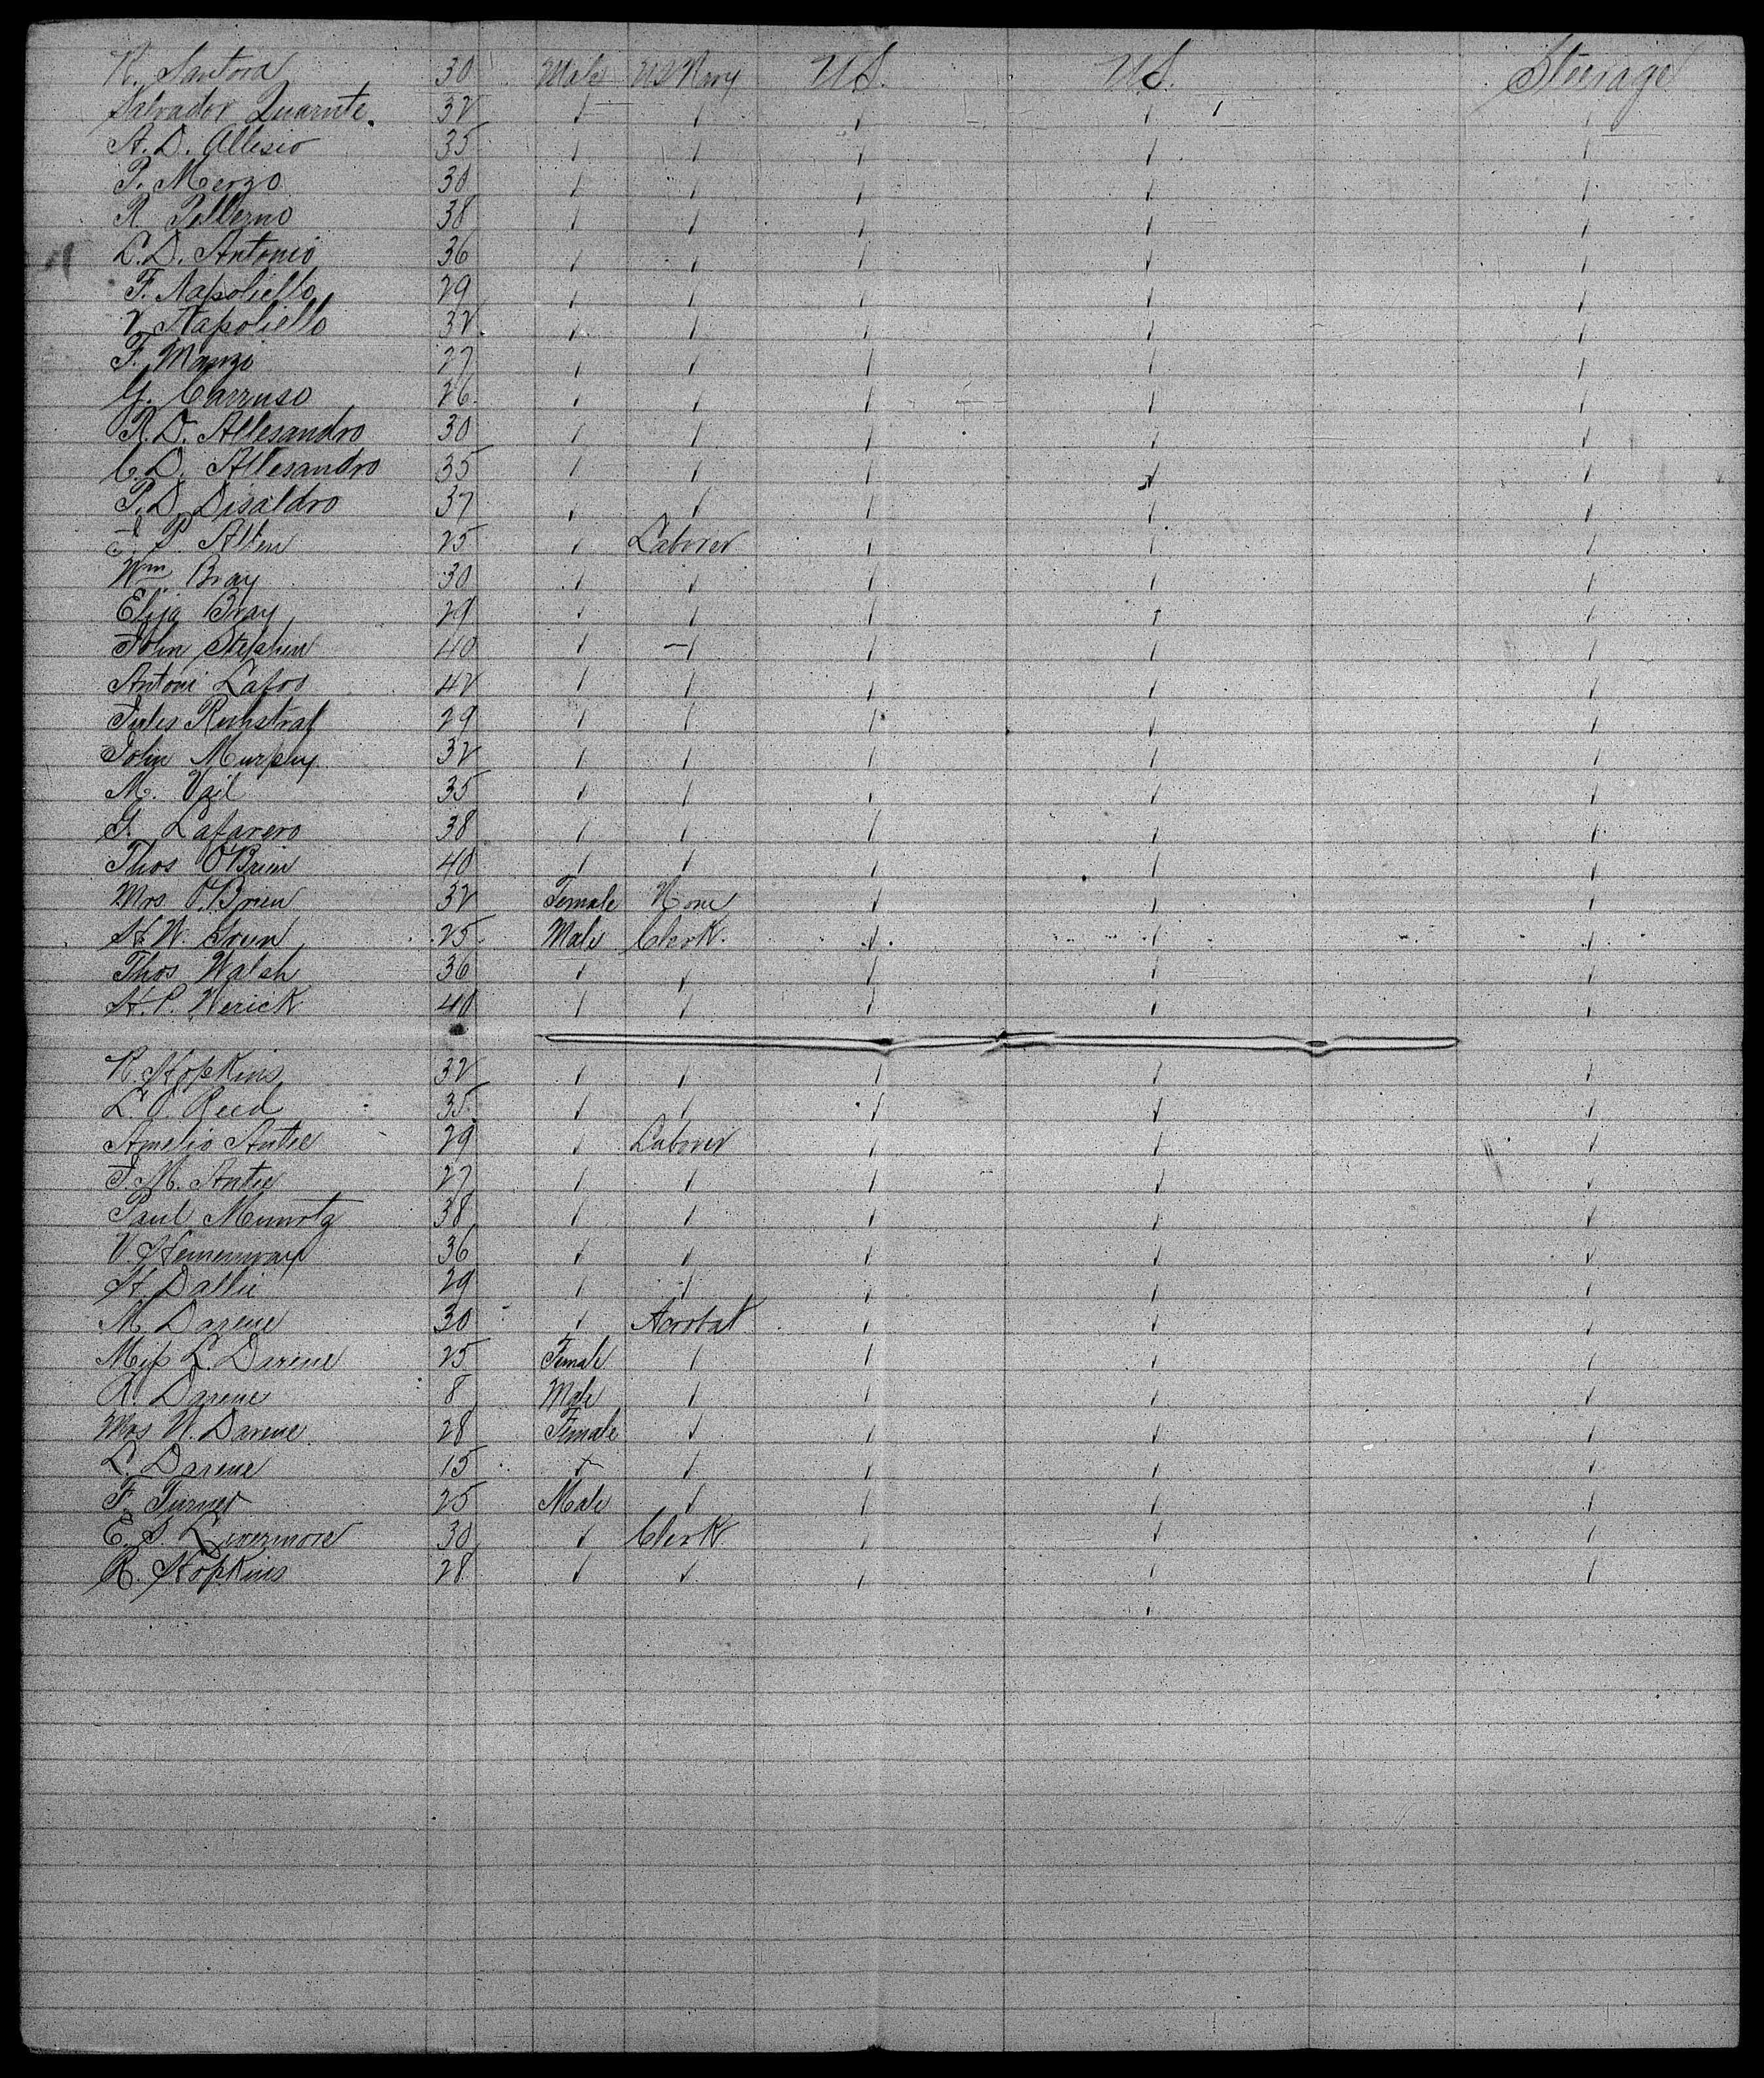 R. Santora 30 Male US Navy U.S. U.S. Steerage
Salvador Quarute. 32 ✓ ✓ ✓ ✓ ✓
A. D. Allesio 35 ✓ ✓ ✓ ✓ ✓
P. Merzo 30 ✓ ✓ ✓ ✓ ✓
R. Pellerno 38 ✓ ✓ ✓ ✓ ✓
C. D. Antonio 36 ✓ ✓ ✓ ✓ ✓
F. Napoliello 29 ✓ ✓ ✓ ✓ ✓
V. Napoliello 32 ✓ ✓ ✓ ✓ ✓
F. Manzi 27 ✓ ✓ ✓ ✓ ✓
G. Carruso 26 ✓ ✓ ✓ ✓ ✓
R. D. Allesandro 30 ✓ ✓ ✓ ✓ ✓
C. D. Allesandro 35 ✓ ✓ ✓ ✓ ✓
P. D. Disaldro 37 ✓ ✓ ✓ ✓ ✓
P. Allen 25 ✓ Laborer ✓ ✓ ✓
Wm Bray 30 ✓ ✓ ✓ ✓ ✓
Elija Bray 29 ✓ ✓ ✓ ✓ ✓
John Stephen 40 ✓ ✓ ✓ ✓ ✓
Antoni Lafos 42 ✓ ✓ ✓ ✓ ✓
Jules Rumstraf 29 ✓ ✓ ✓ ✓ ✓
John Murphy 32 ✓ ✓ ✓ ✓ ✓
M. Vail 35 ✓ ✓ ✓ ✓ ✓
G. Lafarero 38 ✓ ✓ ✓ ✓ ✓
Thos O'Brien 40 ✓ ✓ ✓ ✓ ✓
Mrs O'Brien 32 Female None ✓ ✓ ✓
H. W. Green 25 Male Clerk ✓ ✓ ✓
Thos Walsh 36 ✓ ✓ ✓ ✓ ✓
H. P. Werick 40 ✓ ✓ ✓ ✓ ✓
R. Hopkins 32 ✓ ✓ ✓ ✓ ✓
L. O. Reed 35 ✓ ✓ ✓ ✓ ✓
Amelio Antee 29 ✓ Laborer ✓ ✓ ✓
J. M. Antee 27 ✓ ✓ ✓ ✓ ✓
Paul Munrotz 38 ✓ ✓ ✓ ✓ ✓
V. Hemenway 36 ✓ ✓ ✓ ✓ ✓
H. Dallie 29 ✓ ✓ ✓ ✓ ✓
M. Darene 30 ✓ Acrobat ✓ ✓ ✓
Miss L. Darene 25 Female ✓ ✓ ✓ ✓
R. Darene 8 Male ✓ ✓ ✓ ✓
Mrs W. Darene 28 Female ✓ ✓ ✓ ✓
L. Darene 15 ✓ ✓ ✓ ✓ ✓
F. Turner 25 Male ✓ ✓ ✓ ✓
E. S. Livermore 30 ✓ Clerk ✓ ✓ ✓
R. Hopkins 28 ✓ ✓ ✓ ✓ ✓